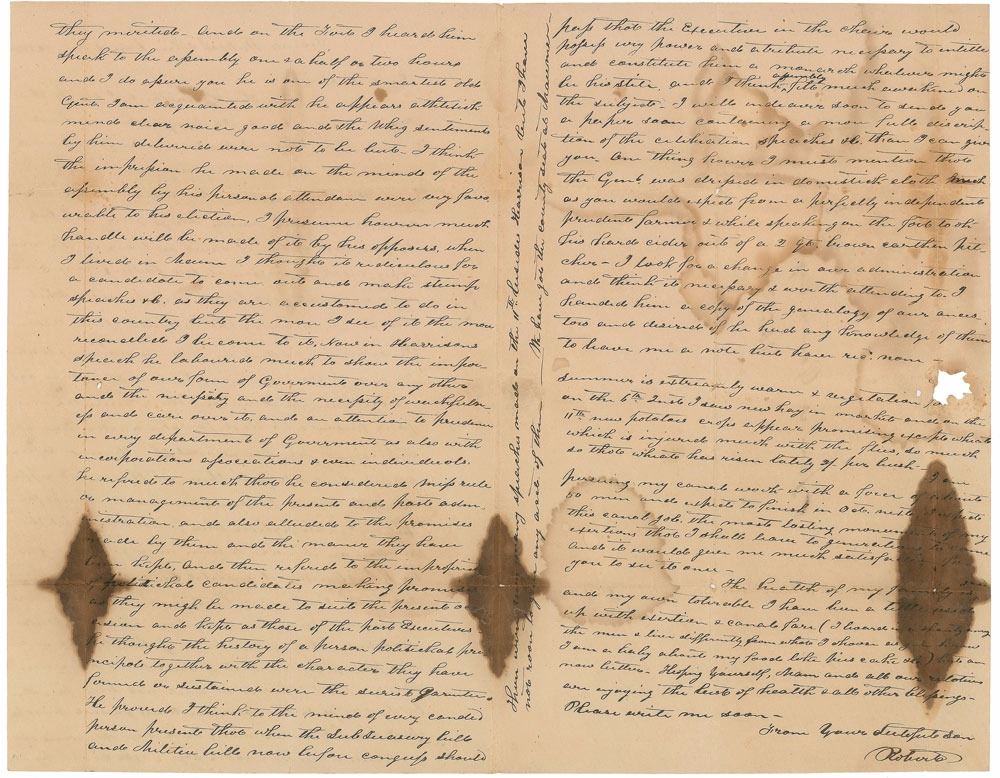 they merited - and on the Fort I heard him
speak to the assembly one & a half or two hours
and I do assure you he is one of the smartest old
Gents I am acquainted with he appears athletick
mind clear voice good and the Whig sentiments
by him delivered were not to be beat. I think
the impression he made on the minds of the
assembly by his personal attendance were very favo
urable to his election, I presume however much
handle will be made of it by his opposers, when
I lived in Maine I thought it ridiculous for
a candidate to come out and make stump
speaches &c. as they are accustomed to do in
this country but the more I see of it the more
reconcilled I become to it. Now in Harrisons
speech he laboured much to show the impor
tance of our form of Government over any other
and the necessity and the necessity of watchfulne
ss and care over it, and an attention to prudence
in every department of Government as also with
incorporations associations & even individuals.
he refered to much that he considered miss rule
or management of the present and past adm
inistration, and also alluded to the promises
made by them and the maner they have
been kept, and then refered to the impropriety
of political candidates making promises
as they might be made to suit the present oc
casion and kept as those of the past Executives
he thought the history of a person political pri
nciples together with the character they have
formed or sustained were the surest Garantee.
He proved I think to the mind of every candid
person present that when the Subtreasury bill
and Militia bill now before congress should
There were many speaches made on the 11th besides Harrison but I have
not room to say any act of them - We have got the county seat at Maumee -
pass that the Executive in the cheirs would
possess evry power and atribute necessary to intitle
and constitute him a monarch whatever might
be his stile, and I think the assembly felt much awakened on
the subject. I will indeavor soon to send you
a paper soon containing a more full discrip-
tion of the celebration speaches &c. than I can give
you. One thing however I must mention that
the Gent. was dressed in domestick cloth much
as you would expect from a perfectly independent
prudent farmer & while speaking on the fort took
his hard cider out of a 2 Qt. brown earthen pit
cher - I look for a change in our administration
and think it necessary & worth attending to. I
handed him a copy of the genealogy of our ances
tors and desired if he had any knowledge of them
to leave me a note but have rec. none -
Summer is extreamly warm & vegetation for
on the 6th Inst I saw new hay in market and on the
11th new potatoes crops appear promising except wheat
which is injured much with the flies, so much
so that wheat has risen lately 2/ per bush - I am
pursing my canal work with a force of
50 men and expect to finish in Oct. next I expect
this canal job the most lasting monument of my
exertions that I shall leave to generations to come
and it would give me much satisfaction for
you to see it once -
The health of my family is
and my own tolerable I have been a little
up with exertion & canal fare (I board in a shanty
the men & live differently from what I choose
I am a baby about my food like pies cake &c) but am
now better - Hoping Yourself, Mam and all our relations
are enjoying the best of health & all other blessings -
Please write me soon -
From Your dutiful son
Robert